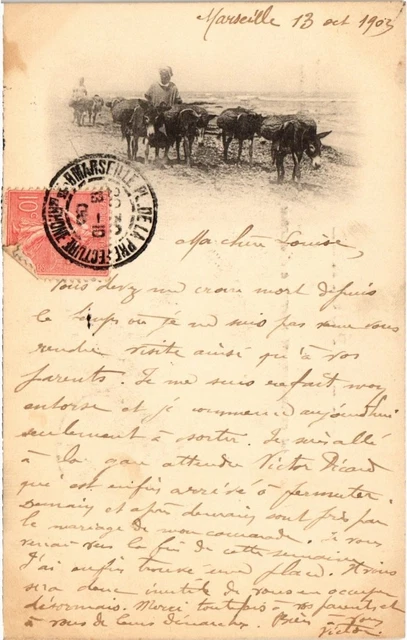 Marseille 13 oct 1903
MARSEILLE PL. DE LA PREFECTURE
Ma chère Louise,
Vous devez me croire mort depuis
le temps où je ne suis pas venu vous
rendre visite ainsi qu'à vos
parents. Je me suis en fait une
entorse et je commence aujourd'hui
seulement à sortir. Je suis allé
à la gare attendre Victor Picard
qui est enfin arrivé à permuter.
Demain et après demain sont pris par
le mariage de mon camarade. Je vous
verrai vers la fin de cette semaine
J'ai enfin trouvé une place. Il vous
sera donc inutile de vous en occuper
désormais. Merci tout fois à vos parents et
à vous de leurs démarches. Bien
Victor